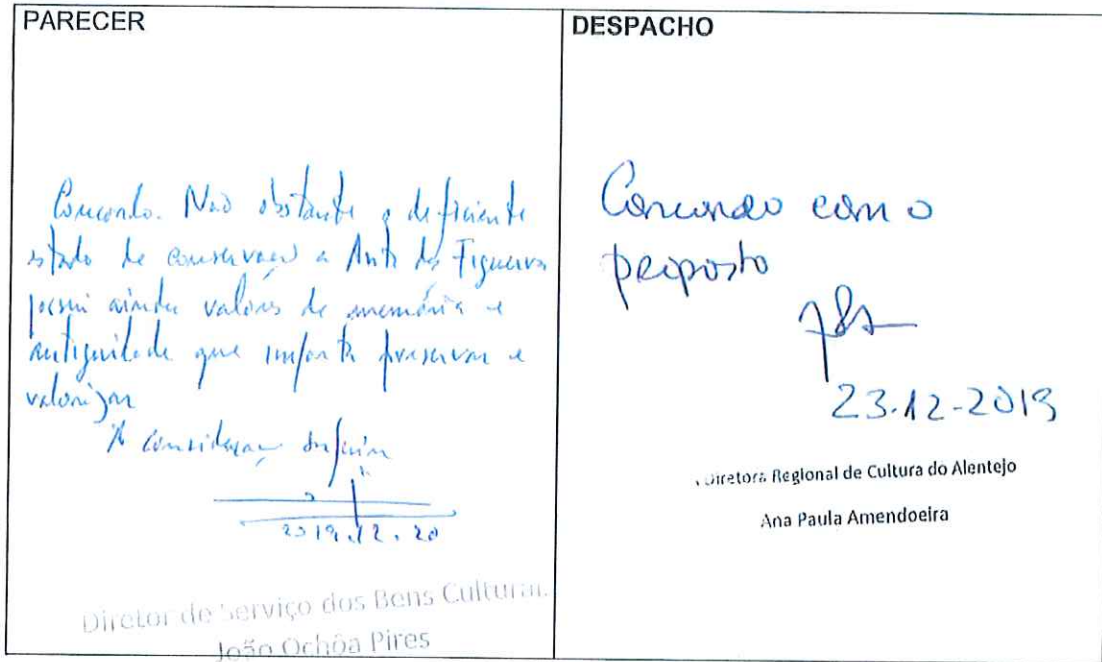 PARECER
Concordo. Não obstante o deficiente
estado de conservação a Anta da Figueira
possui ainda valores de memória e
antiguidade que importa preservar e
valorizar
À consideração superior
2019.12.20
Diretor de Serviço dos Bens Culturais
João Ochôa Pires
DESPACHO
Concordo com o
proposto
23.12-2019
Diretora Regional de Cultura do Alentejo
Ana Paula Amendoeira